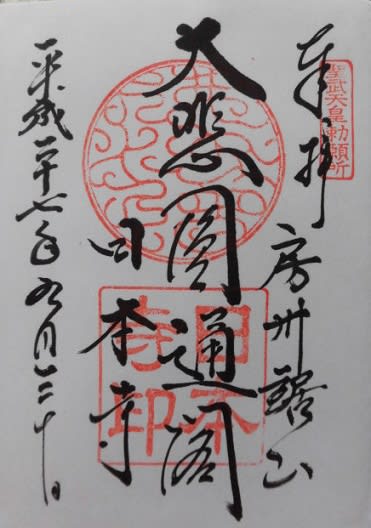 聖武天皇勅願所
奉拝
房州鋸山
大悲圓通閣
日本寺
日本
寺印
平成二十七年九月三十日